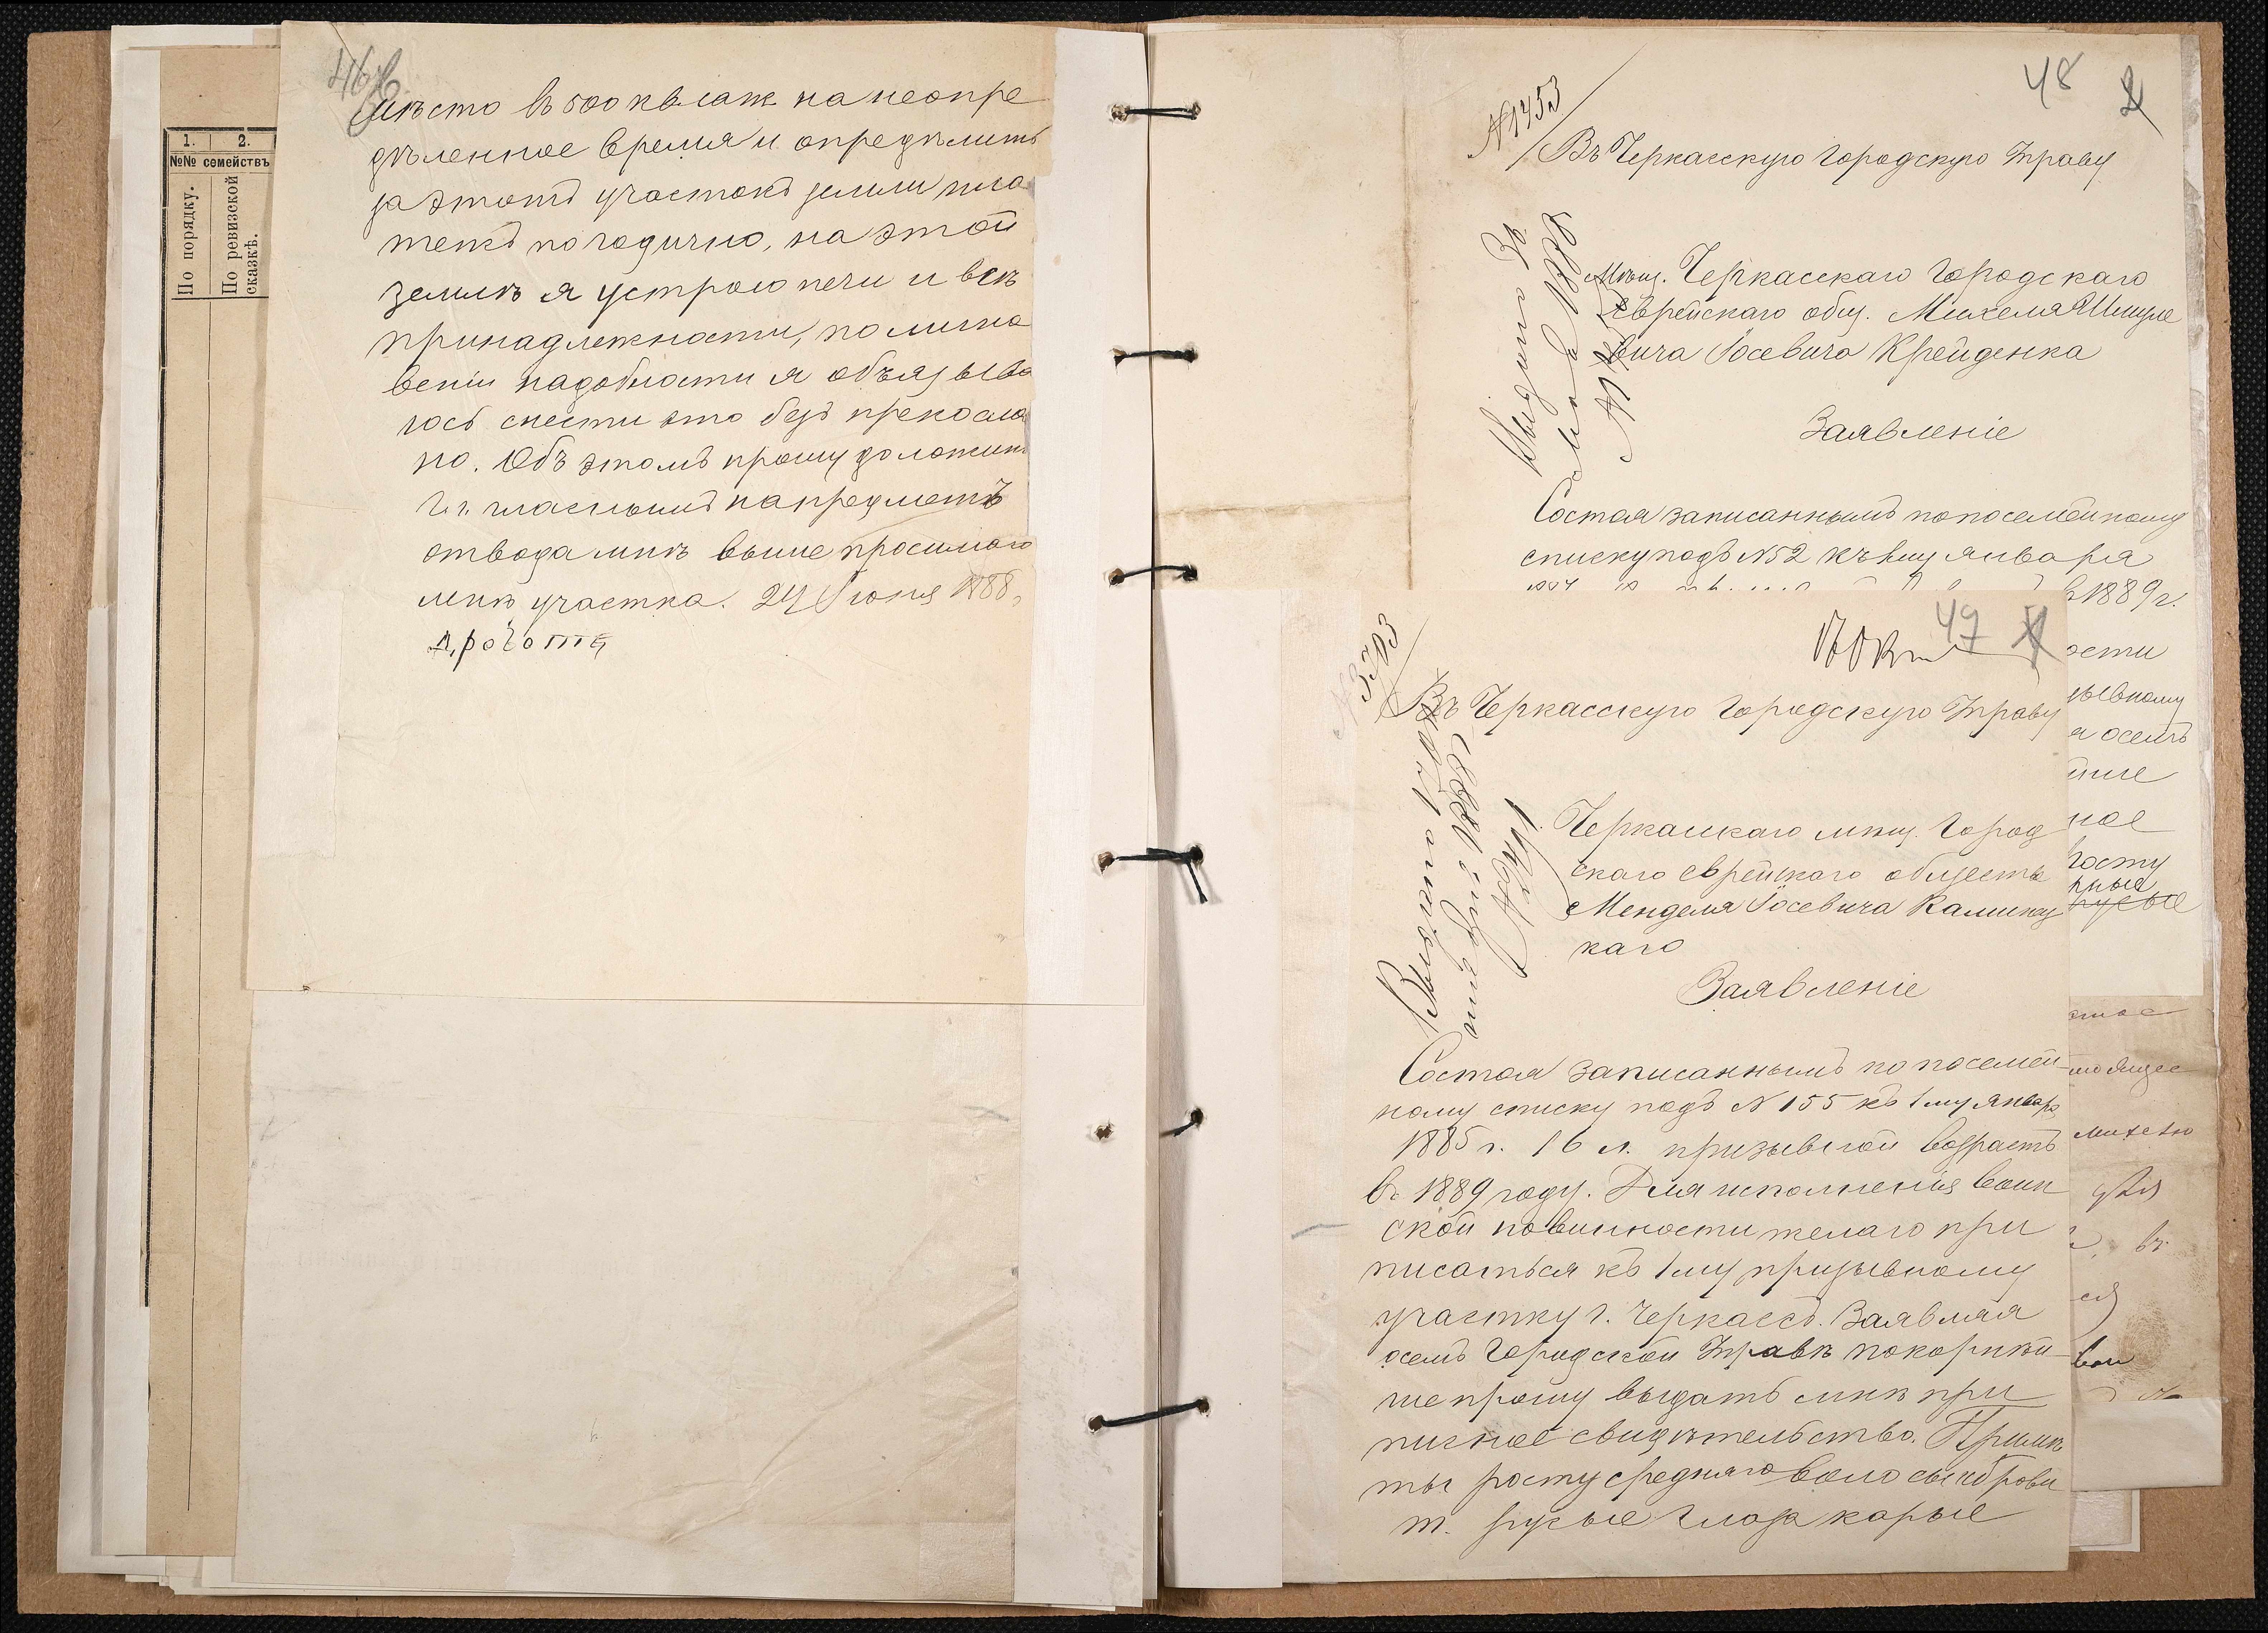 46 об
мѣсто въ 500 кв. саж. на неопре
дѣленное время и опредѣлить
за этотъ участокъ земли пла
тежъ погодично, на этой
землѣ я устрою печи и всѣ
принадлежности, по мино
веніи надобности я обязыва
юсь снести это безъ прекосло
но. Объ этомъ прошу доложить
Г.г. гласнымъ на предметъ
отвода мнѣ выше просимого
мнѣ участка. 24 Іюня 1888
1. 2.
№№ семействъ
По порядку.
По ревизской
сказкѣ.
48
№ 1453
Въ Черкасскую Городскую Управу
Мѣщ. Черкасскаго Городскаго
Еврейскаго общ. Михеля
вича Іосевича Крейденка
Заявленіе
Состоя записаннымъ по посемейному
списку подъ № 52 къ 1му января
1889 г.
ости
ывному
осемъ
йше
ное
росту
рные
русые
49
№ 3703
Въ Черкасскую Городскую Управу
Черкаскаго мѣщ. Город
скаго еврейскаго обществ
Менделя Іосевича Каминец
каго
Заявленіе
Состоя записаннымъ по посемей-
ному списку подъ № 155 къ 1му января
1885 г. 16 л. призывной возрастъ
въ 1889 году. Для исполненія воин
ской повинности желаю при
писаться къ 1му призывному
участку г. Черкассъ. Заявляя
осемъ Городской Управѣ покорнѣй
ше прошу выдать мнѣ при
писное свидѣтельство. Примѣ
ты росту средняго волосы и брови
т. русые глаза карые